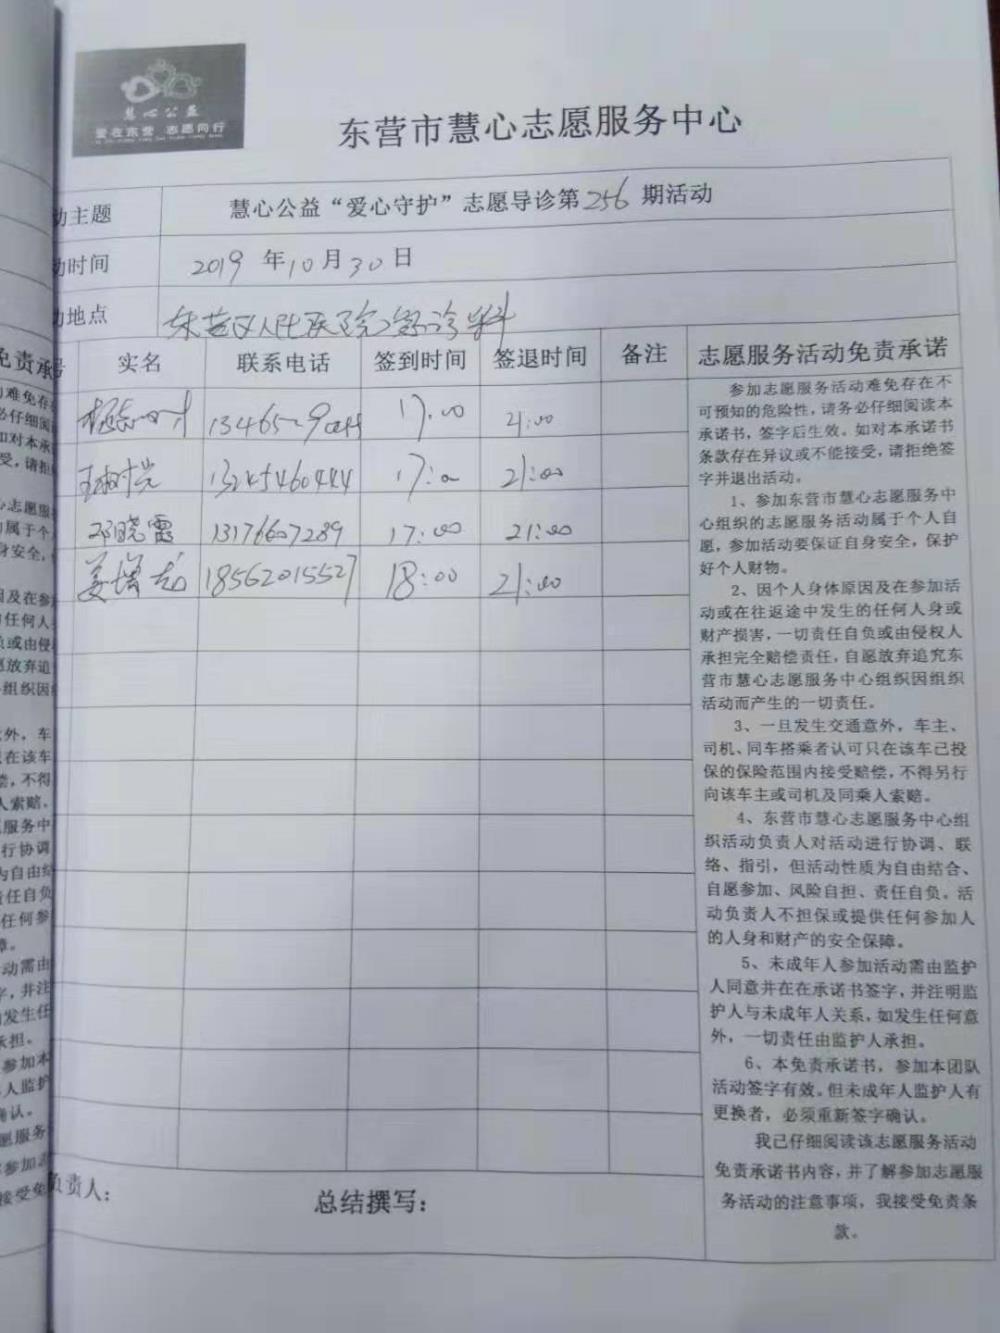 慧心公益
爱在东营 志愿同行
东营市慧心志愿服务中心
动主题 慧心公益“爱心守护”志愿导诊第256期活动
动时间 2019年10月30日
动地点 东营区人民医院急诊科
号 实名 联系电话 签到时间 签退时间 备注 志愿服务活动免责承诺
17:00 21:00
13245460444 17:00 21:00
邓晓雷 13176607289 17:00 21:00
姜增志 18562015527 18:00 21:00
参加志愿服务活动难免存在不
可预知的危险性，请务必仔细阅读本
承诺书，签字后生效。如对本承诺书
条款存在异议或不能接受，请拒绝签
字并退出活动。
1、参加东营市慧心志愿服务中
心组织的志愿服务活动属于个人自
愿，参加活动要保证自身安全，保护
好个人财物。
2、因个人身体原因及在参加活
动或在往返途中发生的任何人身或
财产损害，一切责任自负或由侵权人
承担完全赔偿责任，自愿放弃追究东
营市慧心志愿服务中心组织因组织
活动而产生的一切责任。
3、一旦发生交通意外，车主、
司机、同车搭乘者认可只在该车已投
保的保险范围内接受赔偿，不得另行
向该车主或司机及同乘人索赔。
4、东营市慧心志愿服务中心组
织活动负责人对活动进行协调、联
络、指引，但活动性质为自由结合、
自愿参加、风险自担、责任自负。活
动负责人不担保或提供任何参加人
的人身和财产的安全保障。
5、未成年人参加活动需由监护
人同意并在在承诺书签字，并注明监
护人与未成年人关系，如发生任何意
外，一切责任由监护人承担。
6、本免责承诺书，参加本团队
活动签字有效。但未成年人监护人有
更换者，必须重新签字确认。
我已仔细阅读该志愿服务活动
免责承诺书内容，并了解参加志愿服
务活动的注意事项，我接受免责条
款。
负责人： 总结撰写：